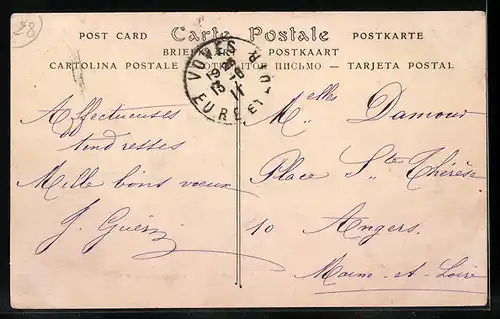 28
POST CARD Carte Postale POSTKARTE
BRIEFKAART POSTKAART
CARTOLINA POSTALE ОТКРЫТОЕ ПИСЬМО — TARJETA POSTAL
VOVES
EURE ET LOIR
Affectueuses
tendresses
Mille bons voeux
J. Guérin
Melles Damour
Place Ste Thérèse
10 Angers.
Maine-et-Loire